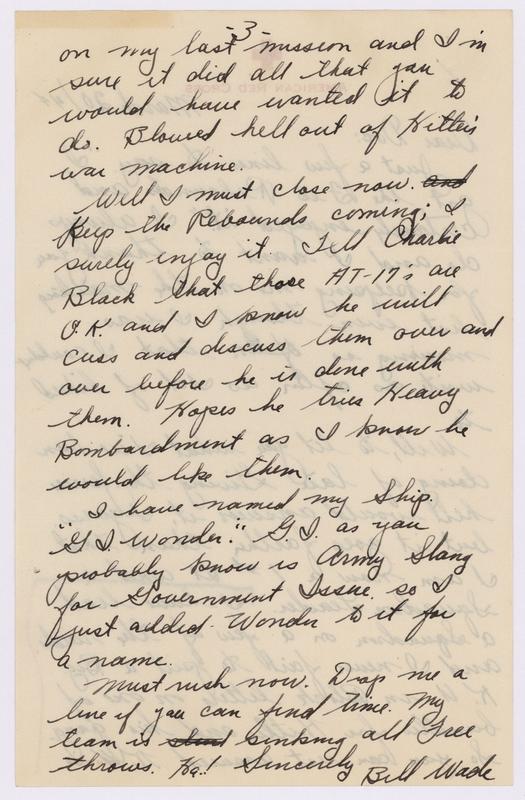 -3-
on my last mission and I'm
sure it did all that you
would have wanted it to
do. Blowed hell out of Hitlers
war machine.
Well I must close now. and
Keep the Rebounds coming; I
surely enjoy it. Tell Charlie
Black that those AT-17's are
O.K. and I know he will
cuss and discuss them over and
over before he is done with
them. Hopes he tries Heavy
Bombardment as I know he
would like them.
I have named my Ship.
"G I. Wonder." G.I. as you
probably know is Army Slang
for Government Issue, so I
just added Wonder to it for
a name.
Must rush now. Drop me a
line if you can find time. My
team is sinking all Free
throws. Ha.! Sincerely
Bill Wade
AMERICAN RED CROSS